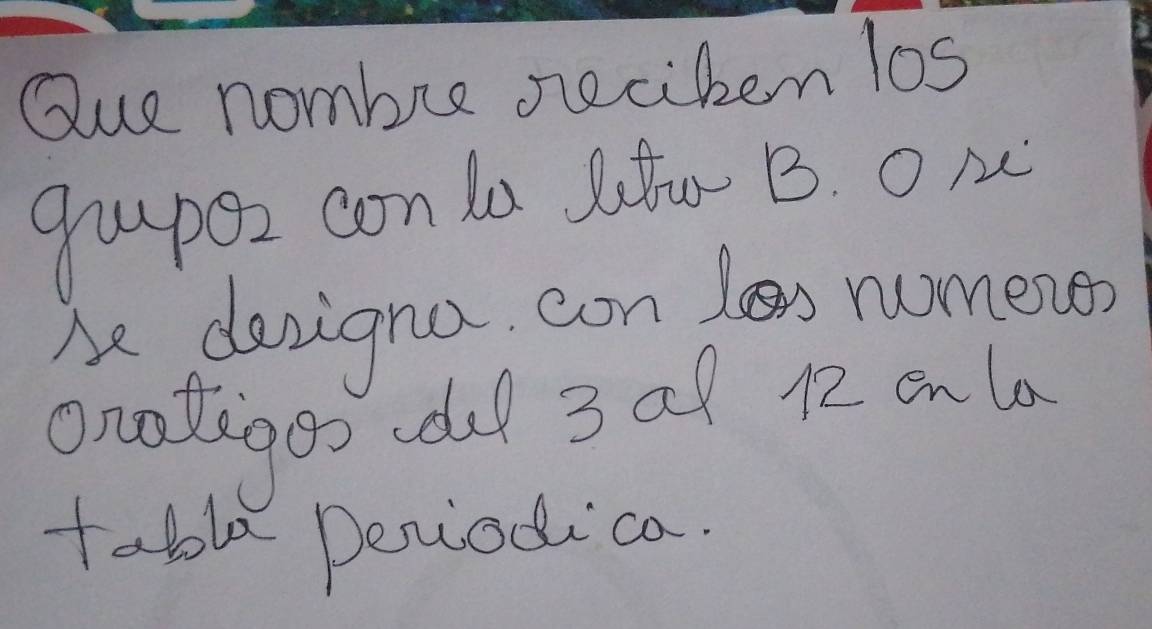 Que nombre reciben los
grupos con la letra B. O si
se designa. con los numeros
oratigos del 3 al 12 en la
tabla periodica.